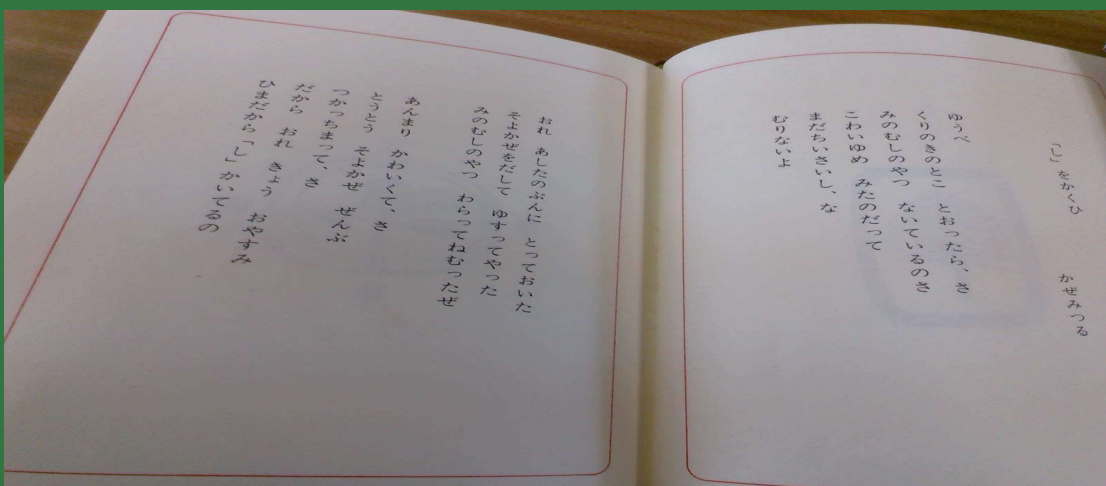 「し」をかくひ
かぜみつる
ゆうべ
くりのきのとこ とおったら、さ
みのむしのやつ ないているのさ
こわいゆめ みたのだって
まだちいさいし、な
むりないよ
おれ あしたのぶんに とっておいた
そよかぜをだして ゆすってやった
みのむしのやつ わらってねむったぜ
あんまり かわいくて、さ
とうとう そよかぜ ぜんぶ
つかっちまって、さ
だから おれ きょう おやすみ
ひまだから「し」かいてるの